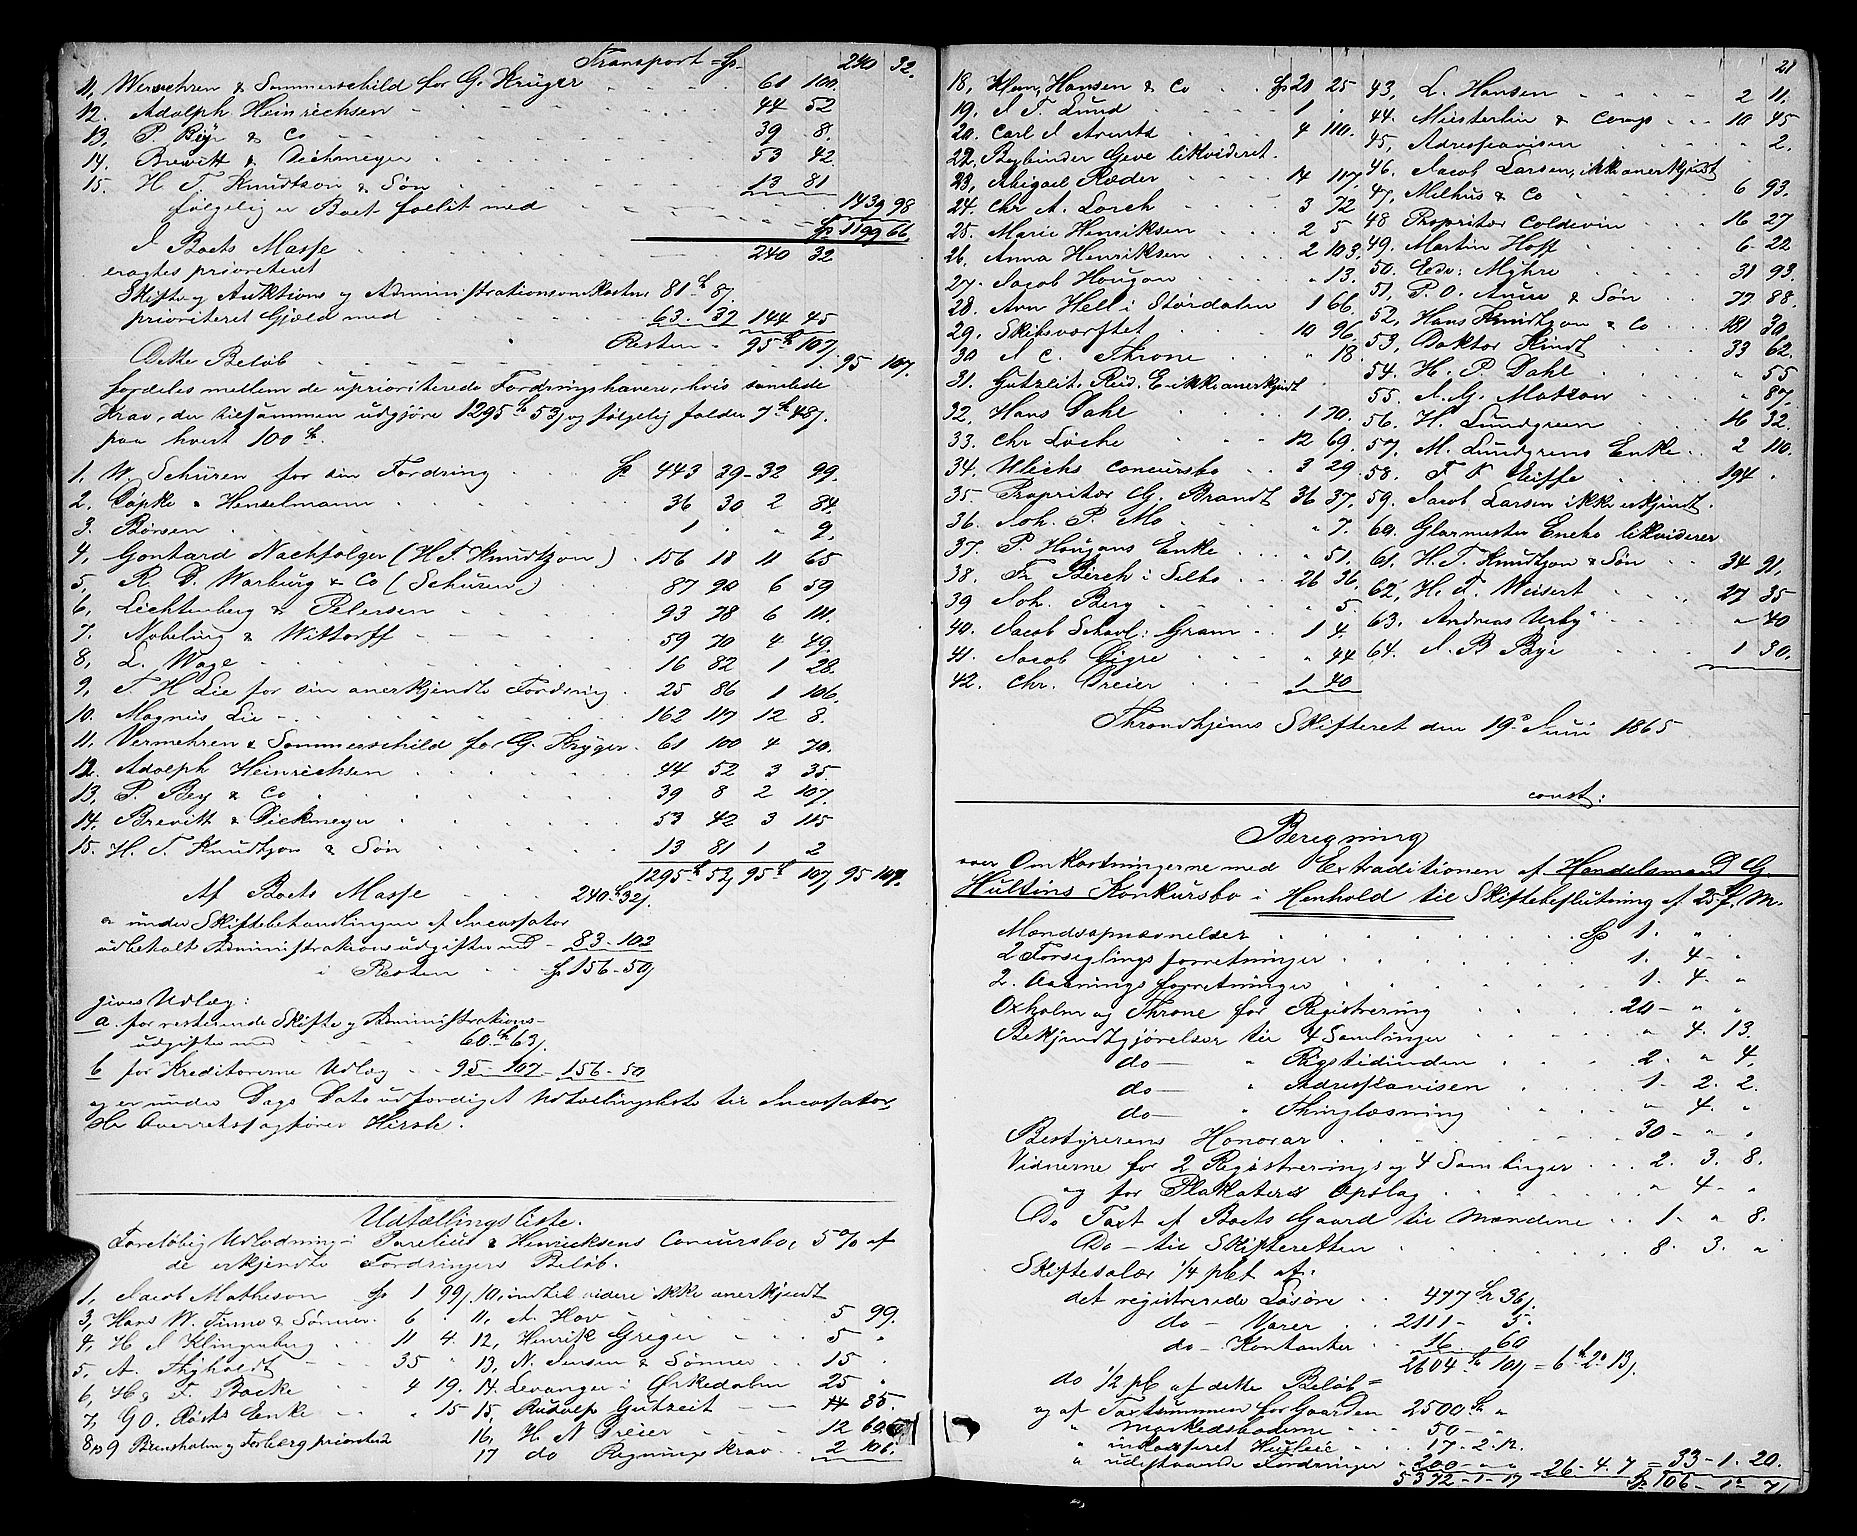 Transport Sp 240 32.
11, Wermehren & Sommerschild for G. Krüger 61 100.
12. Adolph Heinrichsen 44 52
13, P. Bye & Co 39 8.
14. Brevitt & Dickmeyer 53 42
15. H. T. Knudtzon & Søn 13 81
1439 98
følgelig er Boet fallit med Sp 1199 66.
I Boets Masse 240 32
eragtes prioriteret
Skifte og Auktions og Administrationsomkostn 81 87.
prioriteret Gjæld med 63. 37 144 45
Resten 95 107
Dette Beløb 95 107.
fordeles mellem de uprioriterede Fordringshavere, hvis samlede
Krav, der tilsammen udgjøre 1295 53 og følgelig falder 7 48
paa hvert 100
1. W. Schüren for sin Fordring Sp 443 39 - 32 99.
2. Cöpke & Henselmann 36 30 2 84
3. Børsen 1 . . 9.
4, Gontard Nachfolger (H. T. Knudtzon) 156 18 11 65
5, R. D. Warburg & Co (Schüren) 87 90 6 59
6, Lichtenberg & Petersen 93 78 6 111.
7. Nobeling & Wittorff 59 70 4 49.
8, L. Wage 16 82 1 28.
9, T. H Lie for sin anerkjendte Fordring 25 86 1 106.
10. Magnus Lie 162 117 12 8.
11, Vermehren & Sommerschild for G. Krüger 61 100 4 70.
12. Adolph Heinrichsen 44 52 3 35.
13, P. Bey & Co 39 8 2 107.
14. Brevitt & Dickmeyer 53 42 3 115
15. H. T. Knudtzon & Søn 13 81 1 2
1295 52 95 107 95 107.
Af Boets Masse 240 32
er under Skiftebehandlingen af Incassator
udbetalt Administrationsudgifter med 83 - 102
i Resten Sp 156 - 50
gives Udlæg:
a. for resterende Skifte og Administrations-
udgifter med 60 63
b for Kreditorerne Udlæg 95 - 107 - 156 - 50
og er under Dags Dato udfærdiget Udtællingsliste til Incassator,
Hr Overretssagfører Hirsch.
Udtællingsliste.
Foreløbig Udlodning i Parelius & Henricksens Concursbo, 5% af
de erkjendte Fordringers Beløb.
1, Jacob Matheson Sp 1 99 10, indtil videre ikke anerkjendt
3, Hans W. Finne & Sønner 6 . 11, A. Hov 5 99.
4, H. I Klingenberg 11 4. 12, Henrik Greger 5 "
5. A. Thyholdt 35 " 13, N. Jensen & Sønner 15 "
6, H & F. Backe 4 19. 14. Levanger i Ørkedalen 25 "
7, GO. Røsts Enke " 15 15, Rudolp Gutzeit 11 85.
8 og 9 Brunsholm og Forberg prioriteret 16, H. N Dreier 12 60
17 do Regningskrav 2 106.
21
18, Klem, Hansen & Co Sp 21 25
19. I. F. Lund 1 .
20. Carl I Arentz 4 110.
22, Bogbinder Geve likvideret.
23, Abigael Ræder 14 117.
24. Chr. A. Lorck 3 72
25. Marie Henriksen 2 5
26. Anna Henriksen 2 103.
27. Jacob Hougan " 13.
28. Arn Hell i Størdalen 1 66.
29, Skibsværftet 10 96.
30 I. C. Throne " 18.
31. Gutzeit, Reid. E ikke anerkjendt
32, Hans Dahl 1 70.
33. Chr Løche 12 69.
34. Ulichs Concursbo 3 29.
35 Propritær G. Brandt 36 37,
36. Joh. P. Mo " 7.
37. P. Hougans Enke " 51.
38. Fr Birch i Selbo 26 36.
39 Joh. Berg " 5.
40. Jacob Schavl: Gram 1 4.
41. Jacob Digre " 44
42. Chr. Dreier 1 40
43, L. Hansen 2 11.
44. Miesterlin & Comp 10 45
45, Adresseavisen " 2.
46. Jacob Larsen, ikke anerkjendt
47, Milhus & Co 6 93.
48 Propritær Coldevin 16 27
49. Martin Hoff 6 22
50. Edv: Myhre 31 93.
51, P. O. Aune & Søn 77 88.
52, Hans Knudtzon & Co 181 30.
53, Doktor Kindt 33 62.
54. H. P. Dahl " 55
55. A. G. Matzow " 87.
56. H. Lundgreen 16 32.
57, M. Lundgrens Enke 2 110.
58. 194 "
59, Jacob Larsen ikke erkjendt.
60. Glarmester likviderer
61. H. T. Knudtzon & Søn 34 91.
62, H. F. Weisert 27 35
63. Andreas " 40
64. I. B Bye 1 30.
Throndhjems Skifteret den 19de Juni 1865.
const:
Beregning
over Omkostningerne med Extraditionen af Handelsmand D G.
Hultins Konkursbo i Henhold til Skiftebeslutning af 23 f. M.
Mandsopnævnelser Sp 1. " .
2 Forseglingsforretninger 1. 4 - "
2. Aabningsforretninger 1. 4. "
Oxholm og Throne for Registrering 20 - " "
Bekjendtgjørelser til 4 Samlinger " 4. 13.
do - " Rigstidenden 2. " 4,
do - " Adresseavisen 1. 2. 2.
do - " Thinglæsning " 4. "
Bestyrerens Honorar 30 - " "
Vidnerne for 2 Registrerings og 4 Samlinger 2. 3. 8.
og for Plakaters Opslag " 4 - "
Do Taxt af Boets Gaard til Mændene 1. " 8.
Do - til Skifteretten 8. 3. "
Skiftesalær 1/4 pCt af:
det registrerede Løsøre 477 36
do - Varer 2111 - 5.
do - Kontanter 16 60
2604 101 = 6 2 13
do 1/2 pC af dette Beløb =
og af Taxtsummen for Gaarden 2500 "
" Markedsboderne 50 - "
" indkasseret Husleie 17. 2. 12.
" udestaaende Fordringer 200 - " "
5372 - 1 - 17 = 26 - 4. 7 = 33 - 1. 20.
Sp 106 - 1 7